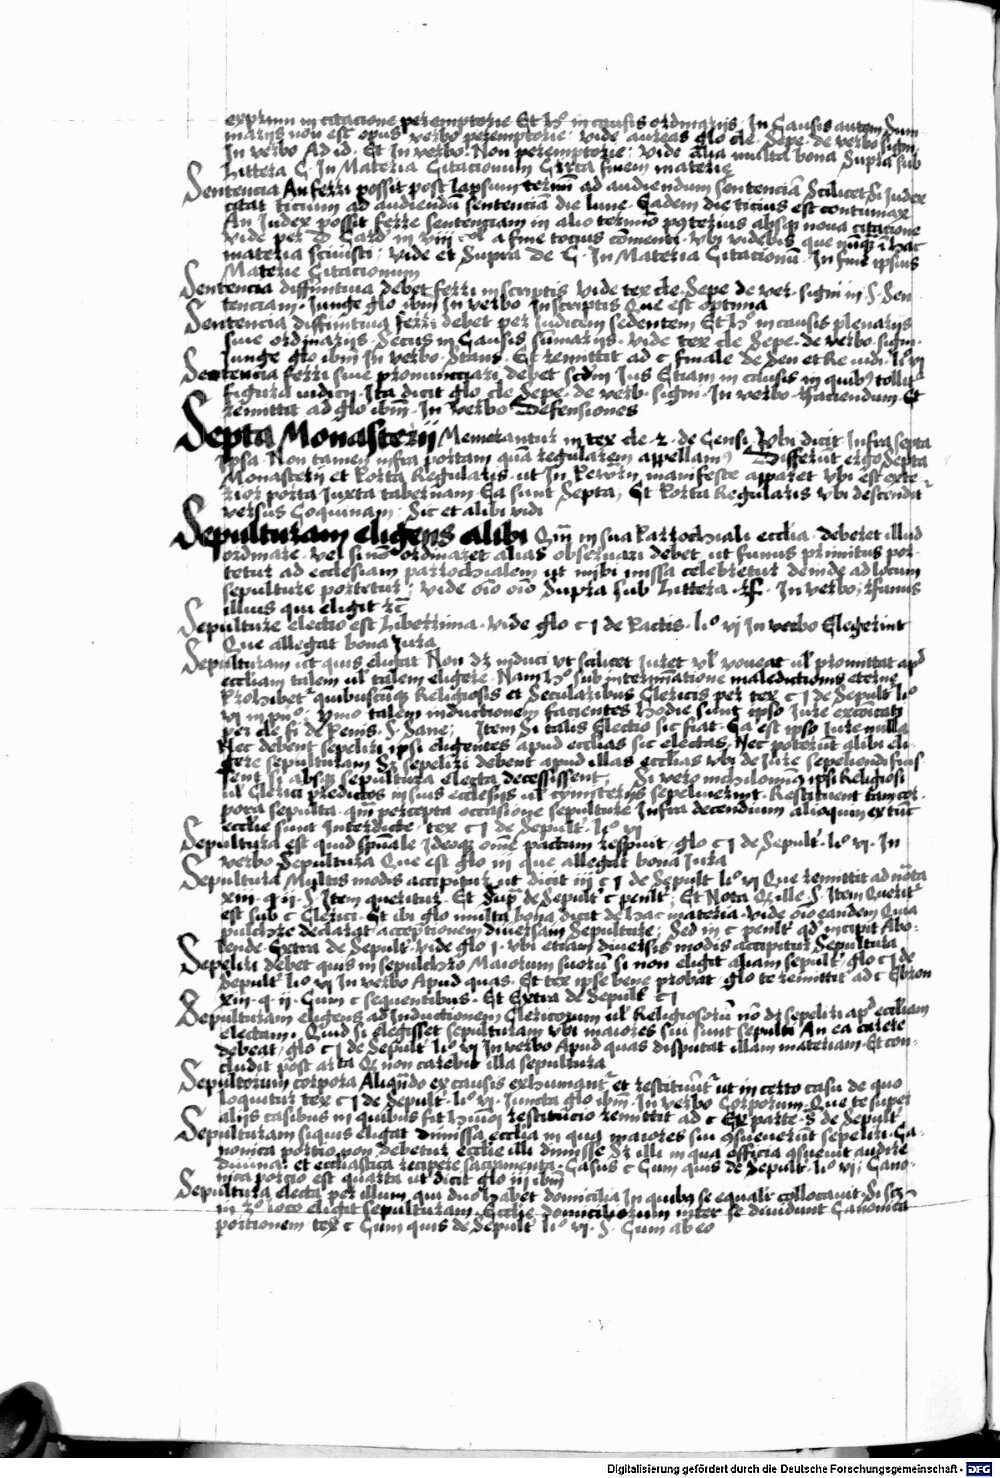 exprimi in citacione peremptorie Et hᵒ in causis ordinarijs. In Causis autem Sum
marijs non est opus verbo peremptorie. vide aureas glo cle. Sepe. de verbo signi.
In verbo Ad id. Et In verbo. Non peremptorie; vide alia multa bona Supra sub
Littera C. in Materia Citacionum Circa finem materie
Sentencia An ferri possit post lapsum termī ad audiendum sentenciā Scilicet Si Judex
citat ticium ad audiendū sentenciā die lune. Eadem die ticius est contumax
An Judex possit ferre sentenciam in alio termino posterius absqꝫ noua citacione
vide per D Card in viij col a fine tocius cōmenti. vbi videbis que nūqꝫ ī hac
materia sciuisti; vide et Supra de C. In Materia Citacionū. In fine ipsius
Materie Citacionum
Sentencia diffinitiua debet ferri in scriptis vide tex cle. Sepe de ver. signi in §. Sen
tenciam. Junge glo ibīn In verbo. In scriptis Que est optima
Sentencia diffinitiua ferri debet per Judicem sedentem Et hᵒ in causis plenarijs
siue ordinarijs. Secus in Causis sūmarijs. vide tex cle Sepe. de verbo. signi.
Junge glo ibīn In verbo. Stans. Et remittit ad c finale de Sen et Re iudi. liᵒ vi
Sentencia ferri siue pronuncciari debet scdm Ius Etiam in causis in quibꝫ tollitʳ
figura iudicij. Ita dicit glo cle Sepe. de verb. signi. In verbo. ffaciendum. Et
remittit ad glo ibīn. In verbo Defensiones
Septa Monasterij Memorantur in tex cle. 2. de Censi. Vbi dicit Infra septa
ipsa. Non tamen infra portam quā regularem appellam⁹ Differūt ergo Septa
Monasterij et Porta Regularis. ut In manifeste apparet vbi est exte-
rior porta Juxta tabernam. Ea sunt Septa, Et Porta Regularis vbi descendit
versus Coquinam. Sic et alibi vidi
Sepulturam eligens alibi Qm̄ in sua Parrochiali ecclia. deberet illud
ordinare. vel si nō ordinaret alias obseruari debet. ut funus primitus por-
tetur ad ecclesiam parrochialem ut inibi missa celebretur deinde ad locum
sepulture portetur; vide oīo oīo Supra sub Littera. ff. In verbo; ffunus
illius qui eligit ꝛc̄
Sepulture electio est Liberrima. vide glo c j de Pactis. liᵒ vj In verbo Elegerint
Que allegat bona Jura
Sepulturam ut quis eligat Non dꝫ induci vt scilicet Juret vl voueat ul promittat apd
eccliam talem ul talem eligere. Nam hᵒ sub interminatione maledictionis eterne
Prohibetʳ quibuscūqꝫ Religiosis et Secularibus Clericis per tex c j de Sepult liᵒ
vj in pnᵒ; ymo talem inductionem facientes hodie sunt ipso Jure excōicati
per cle fi de Penis. §. Sane; Item Si talis Electio sic fiat. Ea est ipso Jure nulla
Nec debent sepeliri ipsi eligentes apud ecclias sic electas. Nec poterūt alibi eli-
gere sepulturam Sꝫ sepeliri debent apud illas ecclias vbi de Jure sepeliendi fuis-
sent si absqꝫ sepultura electa decessissent; Si vero nichilominꝰ ipsi Religiosi
ul Clerici predictos in suis ecclesijs ul cymiterijs sepelierint. Restituent tam cor-
pora sepulta. qm̄ percepta occasione sepulture Infra decendium alioquin ex tūc
ecclie sunt Interdicte, tex c j de Sepult. liᵒ vj
Sepultura est quid spūale Ideoqꝫ oīne pactum respuit, glo c j de Sepult. liᵒ vj. In
verbo Sepultura Que est glo iij que allegat bona Jura
Sepultura Multis modis accipitur ut dicit iij c j de Sepult liᵒ vj Que remittit ad nōta
xiij. q ij. §. Item queritur. Et Supra de Sepult c penlt; Et Nota Qꝫ ille §. Item Queritʳ
est sub c Clerici. Et ibi glo multa bona dicit de hac materia. vide oīo eandem Quia
pulchre declarat acceptionem diuersam Sepulture; Sed in c penlt qd incipit Abo-
lende. Extra de Sepult. vide glo j. vbi etiam diuersis modis accipitur Sepultura
Sepeliri debet quis in sepulchro Maiorum suorū si non eligit aliam sepult, glo c j de
Sepult liᵒ vj In verbo Apud quas. Et tex ipse bene probat. glo te remittit ad c Ebron
xiij. q. ij. Cum c sequentibus. Et Extra de Sepult c j
Sepulturam eligens ad Inductionem Clericorum ul Religiosorū nō dꝫ sepeliri apᵈ eccliam
electam. Quid si elegisset sepulturam vbi maiores sui sunt sepulti An ea carere
debeat, glo c j de Sepult liᵒ vj In verbo Apud quas disputat illam materiam. Et con-
cludit post arta Qꝫ non carebit illa sepultura
Sepultorum corpora Aliqn̄do ex causis exhumantʳ et restituūtʳ ut in certo casu de quo
loquitur tex c j de Sepult. liᵒ vj. Juncta glo ibīn. In verbo Corporum. Que te super
alijs casibus in quibus fit hmōi restitucio remittit ad c Ex parte. §. de Sepult
Sepulturam siquis eligat dimissa ecclia in qua maiores sui ꝯsueuerūt sepeliri. Ca-
nonica portio non debetur ecclie illi dimisse Sꝫ illi in qua officia ꝯsueuit audire
diuina. et ecclīastica recipere sacramenta. Casus c Cum quis de Sepult. liᵒ vj; Cano-
nica porcio est quarta ut dicit glo iij ibīn
Sepultura electa per illum, qui duo habet domicilia In quibꝫ se equalr collocauit. Si scꝫ
in 3ᵒ loco eligit sepulturam. Ecclie domiciliorum inter se diuidunt Canonicā
portionem tex c Cum quis de Sepult liᵒ vj. §. Cum ab eo
Digitalisierung gefördert durch die Deutsche Forschungsgemeinschaft - DFG